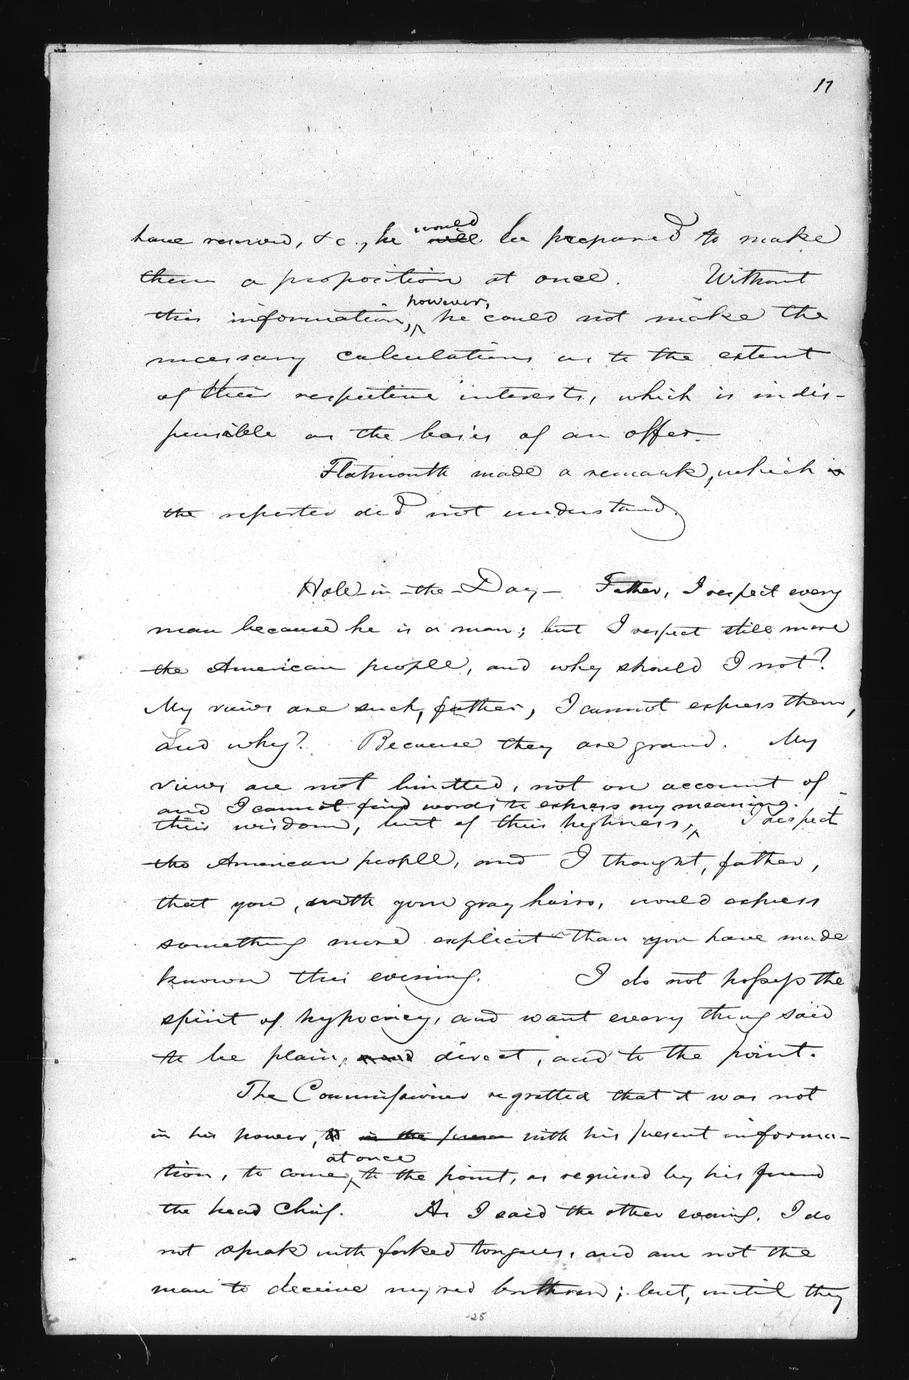 17
have reserved, &c., he would will be prepared to make
them a proposition at once. Without
this information, however, he could not make the
necessary calculations as to the extent
of their respective interests, which is indis-
pensible as the basis of an offer.
Flatmouth made a remark, which
the reporter did not understand.
Hole-in-the-Day— Father, I respect every
man because he is a man; but I respect still more
the American people, and why should I not?
My views are such, father, I cannot express them,
And why? Because they are grand. My
views are not limitted, not on account of
and I cannot find words to express my meaning.
their wisdom, but of their highness, I respect
the American people, and I thought, father,
that you, with your gray hairs, would express
something more explicit than you have made
known this evening. I do not possess the
spirit of hypocricy, and want every thing said
to be plain, and direct, and to the point.
The Commissioner regretted that it was not
in his power, in the with his present informa-
tion, to come at once to the point, as required by his friend
the head Chief. As I said the other evening, I do
not speak with forked tongues, and am not the
man to deceive my red brethren; but, until they
25